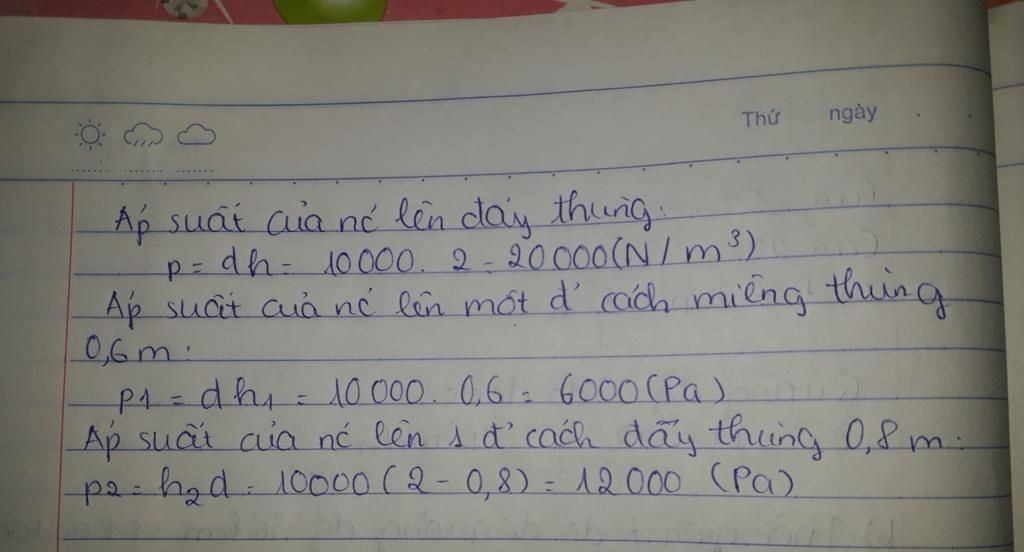 Thứ ngày
Áp suất của nć lên đáy thùng:
p = dh = 10000. 2 = 20000(N/m³)
Áp suất của nć lên một đ' cách miêng thùng
0,6m:
p1 = dh₁ = 10000. 0,6 = 6000(Pa)
Áp suất của nć lên 1 đ' cách dãy thung 0,8m:
p2 = h₂d = 10000(2 - 0,8) = 12000 (Pa)